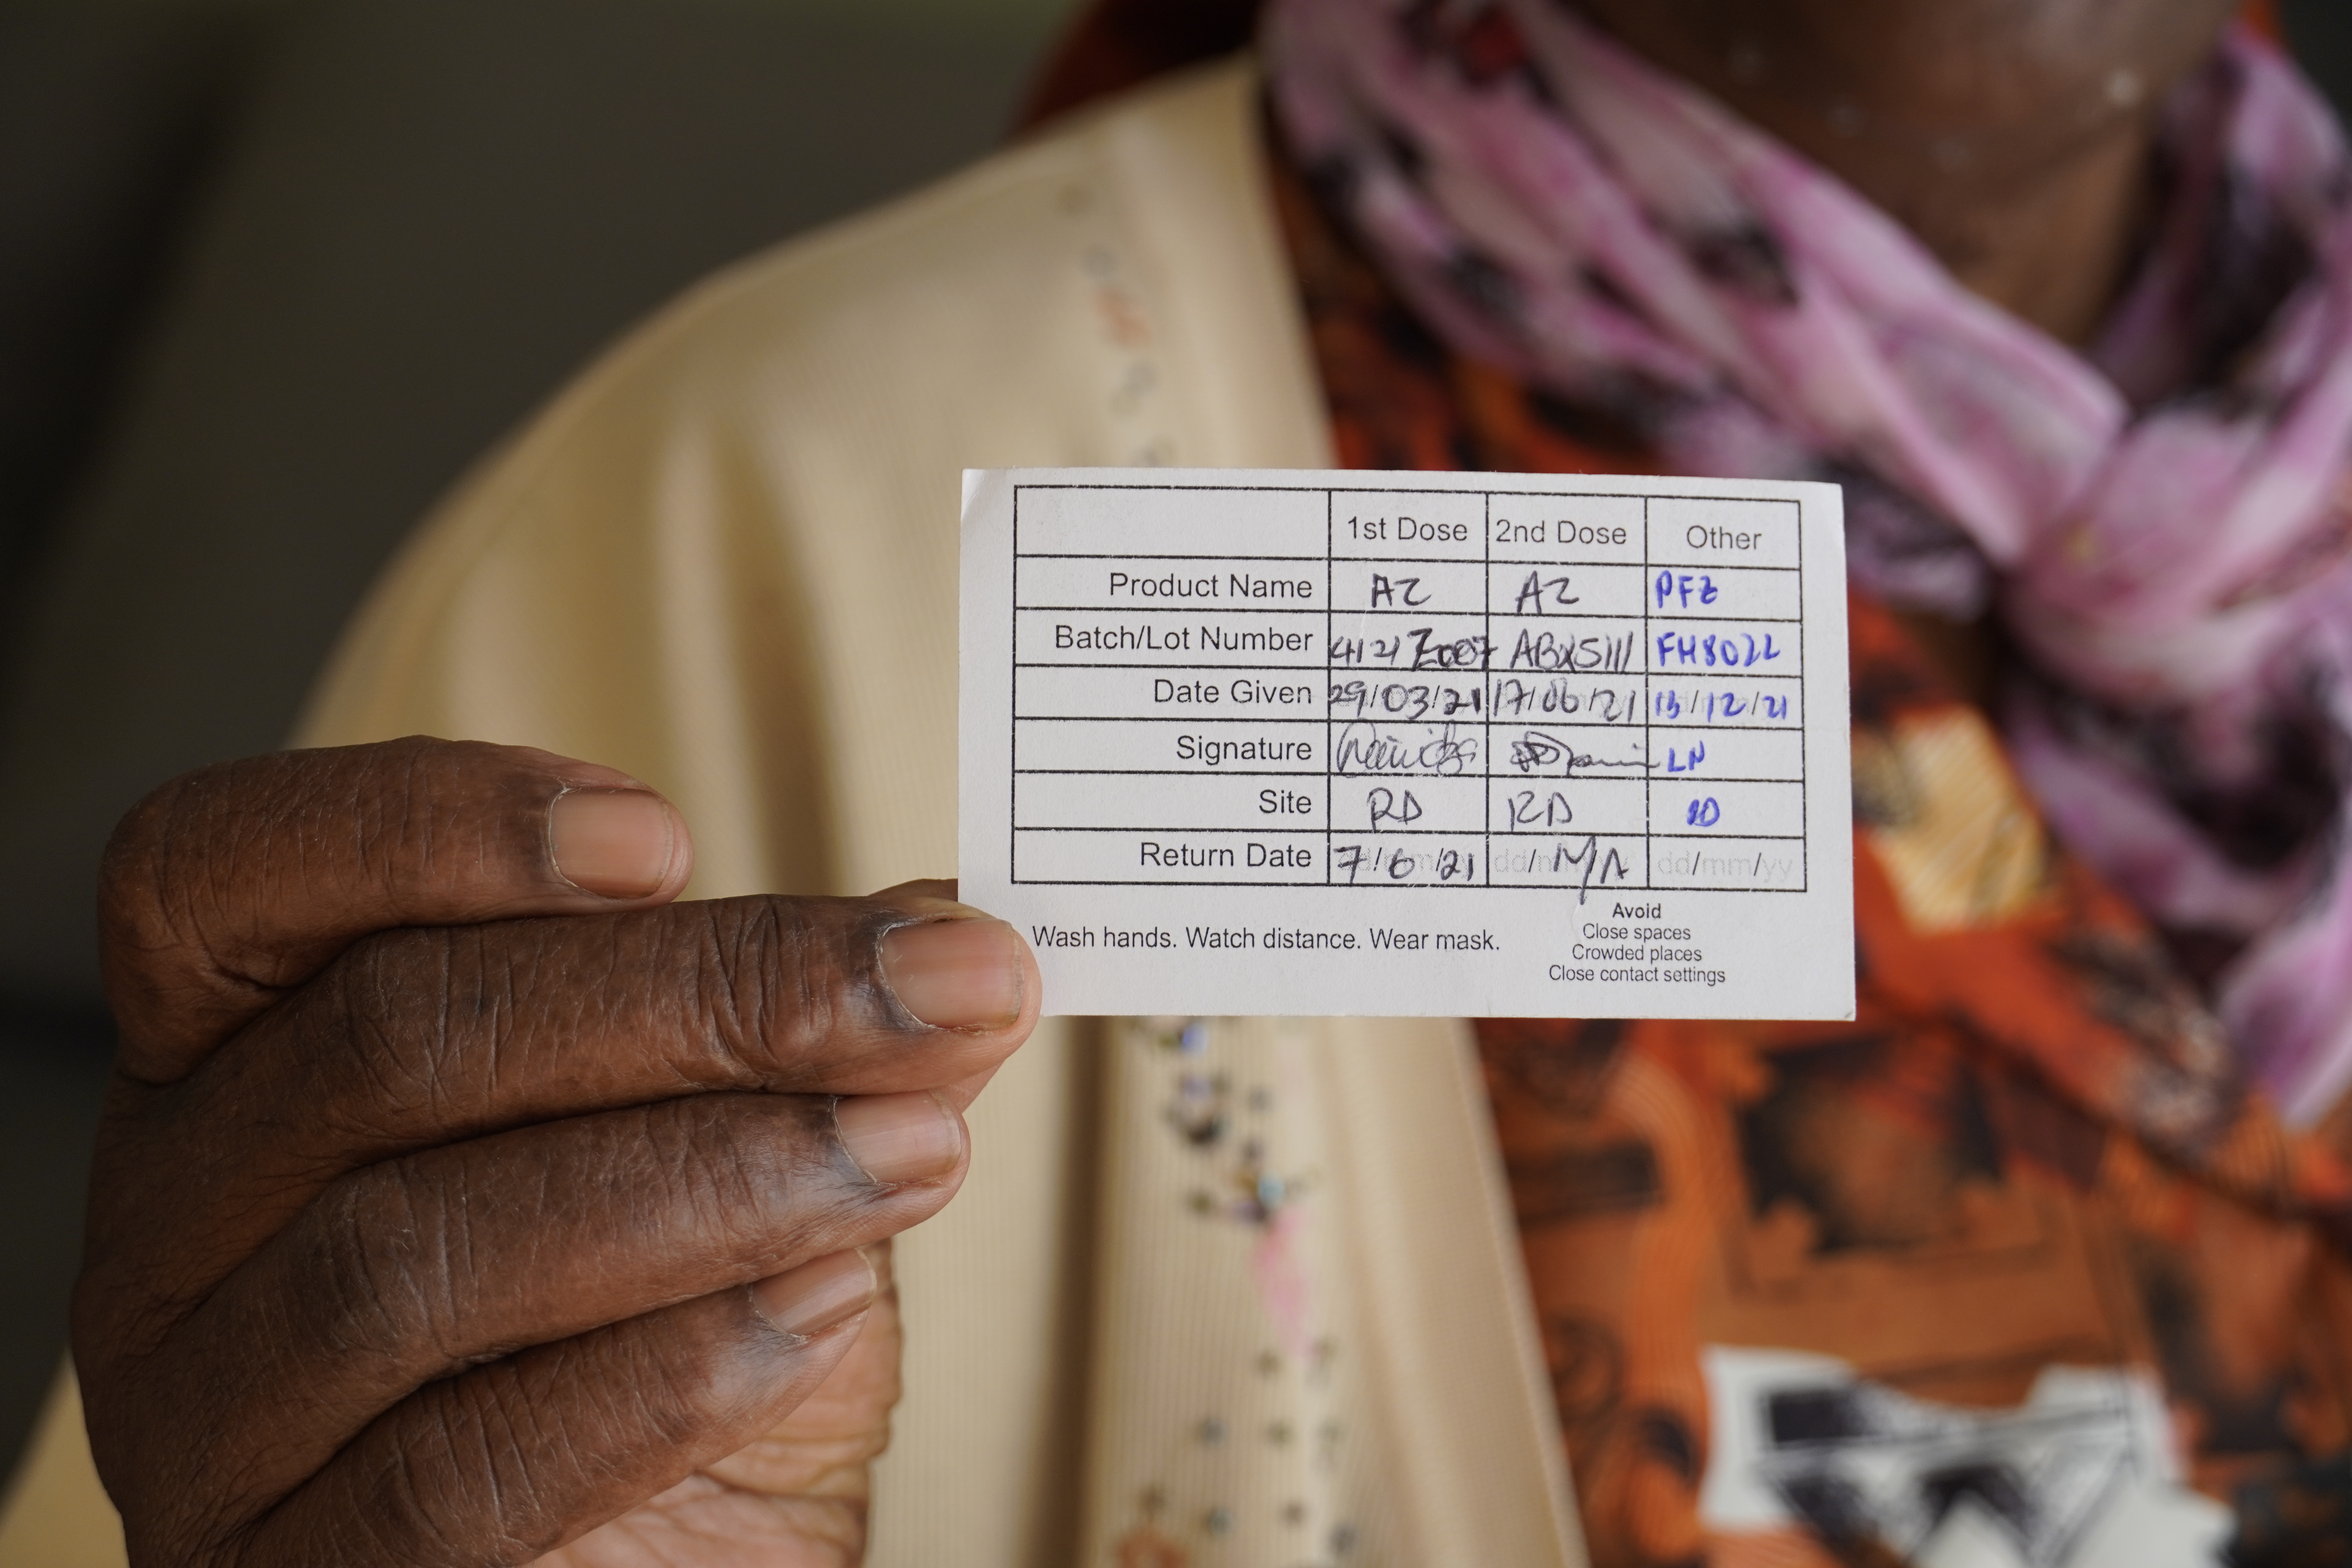 1st Dose 2nd Dose Other
Product Name AZ AZ PFZ
Batch/Lot Number 4121Z007 ABX5111 FH8022
Date Given 29/03/21 17/06/21 /12/21
Signature LN
Site RD RD
Return Date 7/6/21 dd/ N/A dd/mm/yy
Wash hands. Watch distance. Wear mask.
Avoid
Close spaces
Crowded places
Close contact settings